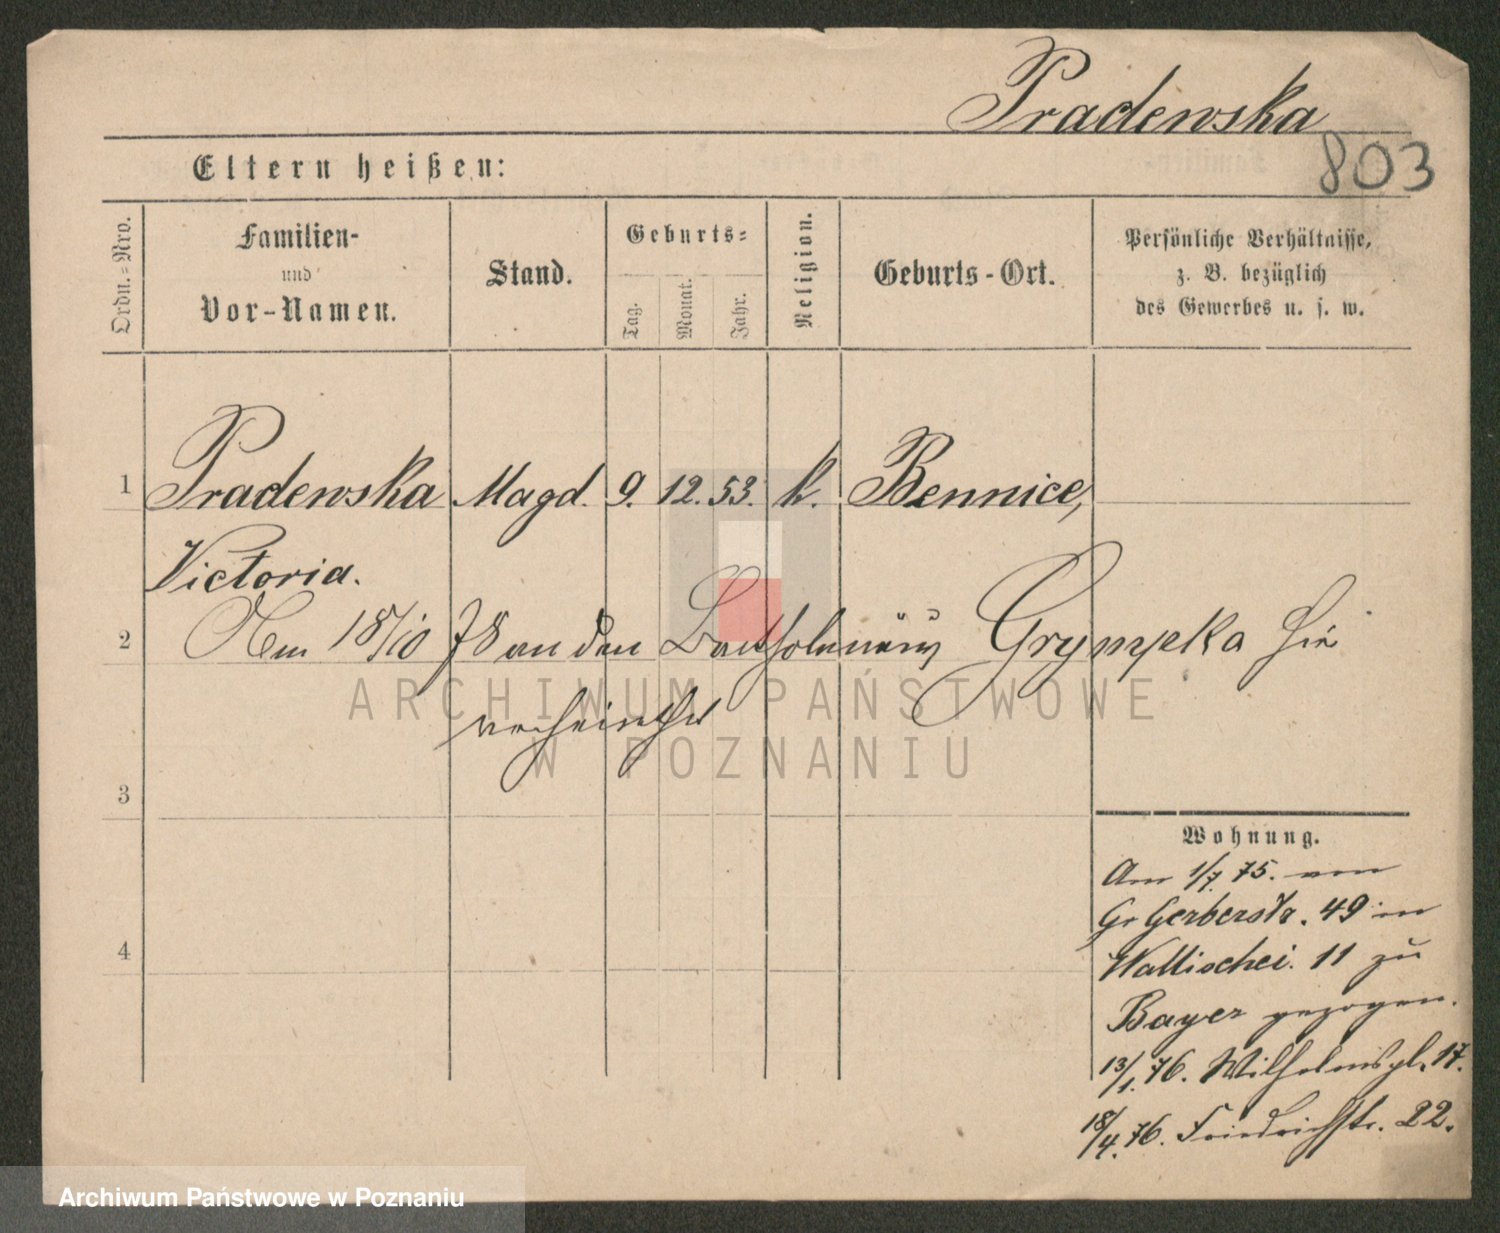 Pradewska
803
Eltern heißen:
Ordn.=Nro.
Familien-
und
Vor-Namen.
Stand.
Geburts=
Tag.
Monat.
Jahr.
Religion.
Geburts-Ort.
Persönliche Verhältnisse,
z. B. bezüglich
des Gewerbes u. s. w.
1 Pradewska Magd. 9. 12. 53. k. Bennice,
Victoria.
2 18/10 78 an den Grympeka hie
verheirathet
3
4
Wohnung.
Am 1/7. 75. von
Gr Gerberstr. 49 in
Wallischei. 11 zu
Bayer gezogen.
13/1. 76. Wilhelmspl. 17.
18/4. 76. Friedrichstr. 22.
ARCHIWUM PAŃSTWOWE
W POZNANIU
Archiwum Państwowe w Poznaniu